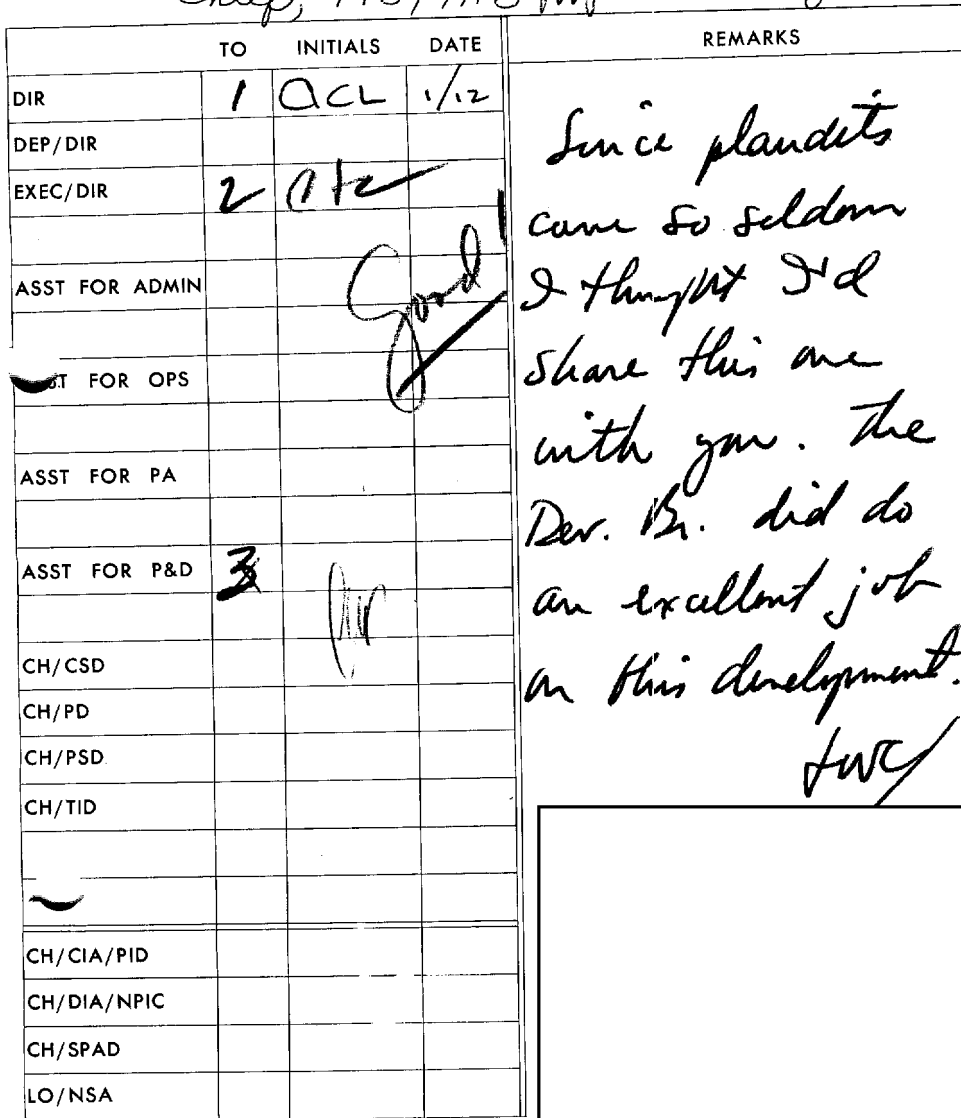 TO INITIALS DATE REMARKS
DIR 1 ACL 1/12
DEP/DIR
EXEC/DIR 2
Good!
ASST FOR ADMIN
FOR OPS
ASST FOR PA
ASST FOR P&D 3
CH/CSD
CH/PD
CH/PSD
CH/TID
CH/CIA/PID
CH/DIA/NPIC
CH/SPAD
LO/NSA
Since plaudits
come so seldom
I thought I'd
share this one
with you. The
Dev. Br. did do
an excellent job
on this development.